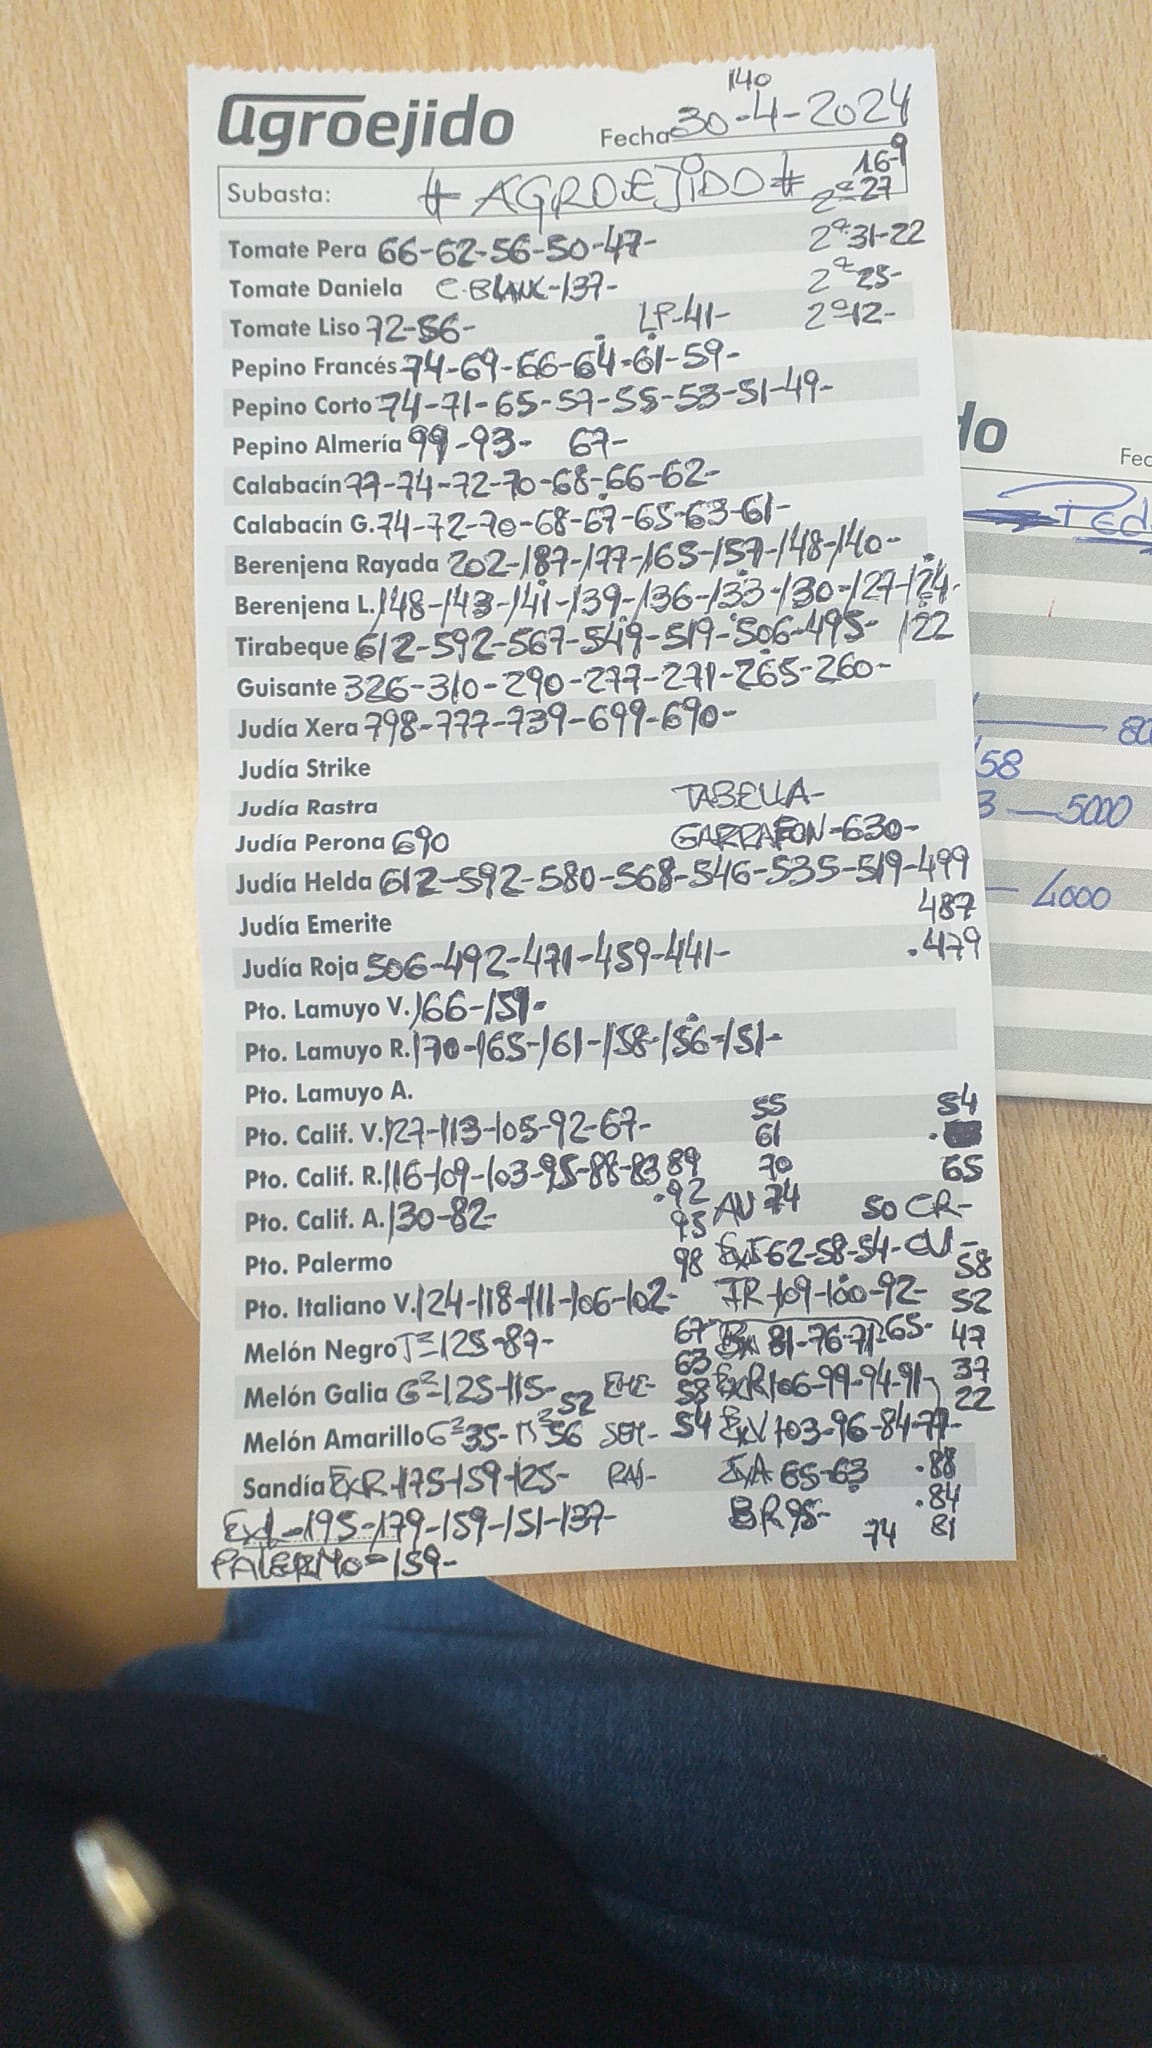 140
agroejido Fecha 30-4-2024
16-9
Subasta: # AGROEJIDO # 2ª 27
Tomate Pera 66-62-56-50-47- 2ª 31-22
Tomate Daniela C-BLANC-137- 2ª 25-
Tomate Liso 72-56- LP-41- 2ª 12-
Pepino Francés 74-69-66-64-61-59-
Pepino Corto 74-71-65-57-55-53-51-49-
Pepino Almería 99-93- 67-
Calabacín 77-74-72-70-68-66-62-
Calabacín G. 74-72-70-68-67-65-63-61-
Berenjena Rayada 202-187-177-165-157-148-140-
Berenjena L. 148-143-141-139-136-133-130-127-124-
Tirabeque 612-592-567-549-519-506-495- 122
Guisante 326-310-290-277-271-265-260-
Judía Xera 798-777-739-699-690-
Judía Strike
Judía Rastra TABELLA-
Judía Perona 690 GARRAFON-630-
Judía Helda 612-592-580-568-546-535-519-499
487
Judía Emerite
Judía Roja 506-492-471-459-441- .479
Pto. Lamuyo V. 166-151-
Pto. Lamuyo R. 170-165-161-158-156-151-
Pto. Lamuyo A.
55 54
Pto. Calif. V. 127-113-105-92-67- 61
Pto. Calif. R. 116-109-103-95-88-83 89 70 65
.92 AU 74 50 CR-
Pto. Calif. A. 130-82- 95
Pto. Palermo 98 62-58-54- CU- 58
Pto. Italiano V. 124-118-111-106-102- IR 109-100-92- 52
Melón Negro 125-87- 67 81-76-71-65- 47
63 37
Melón Galia G2=125-115- 52 58 ExR 106-99-94-91- 22
Melón Amarillo G2 35- 56 SEM- 54 ExV 103-96-84-77-
Sandía ExR-175-159-125- RAJ- ExA 65-63 .88
.84
ExL-195-179-159-151-137- BR 95- 74 81
PALERMO-159-
do Fec
Ped
80
58
3 — 5000
4000